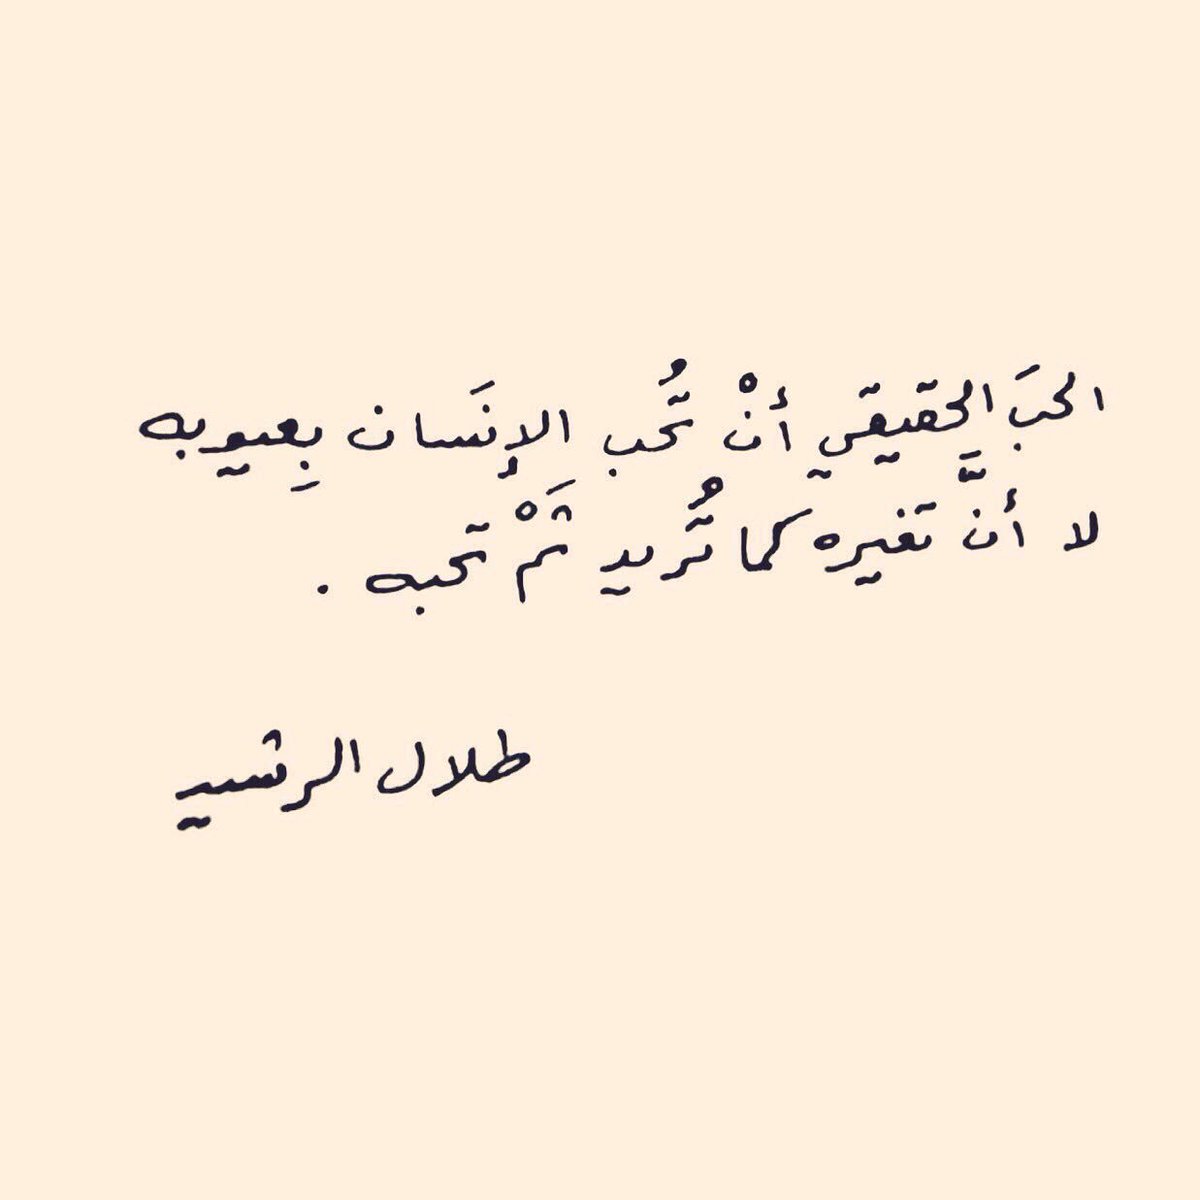 الحبَ الحقيقي أنْ تُحب الإنَسان بِعيوبه
لا أنَّ تغيره كما تُريد ثَمْ تحبه .
طلال الرشيد